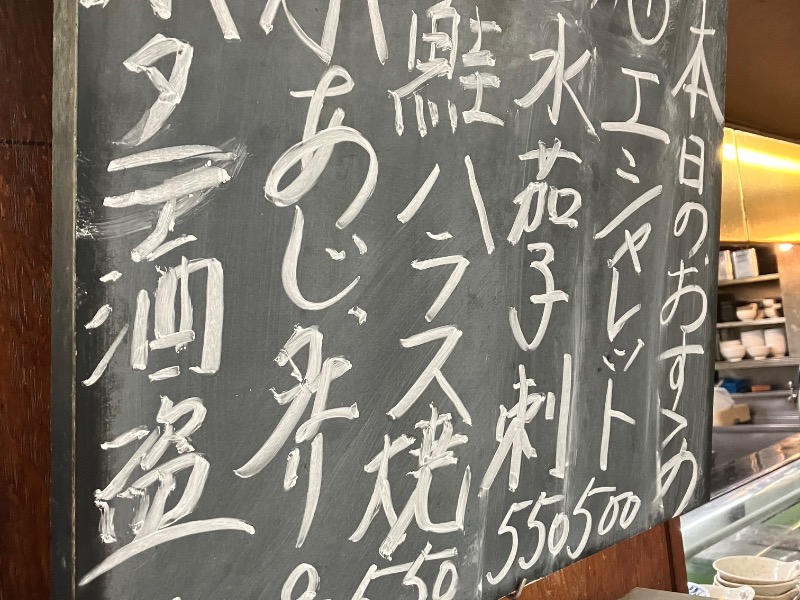 本日のおすすめ
① エシャレット 500
水茄子刺 550
鮭ハラス焼 550
あじ
タテ酒盗